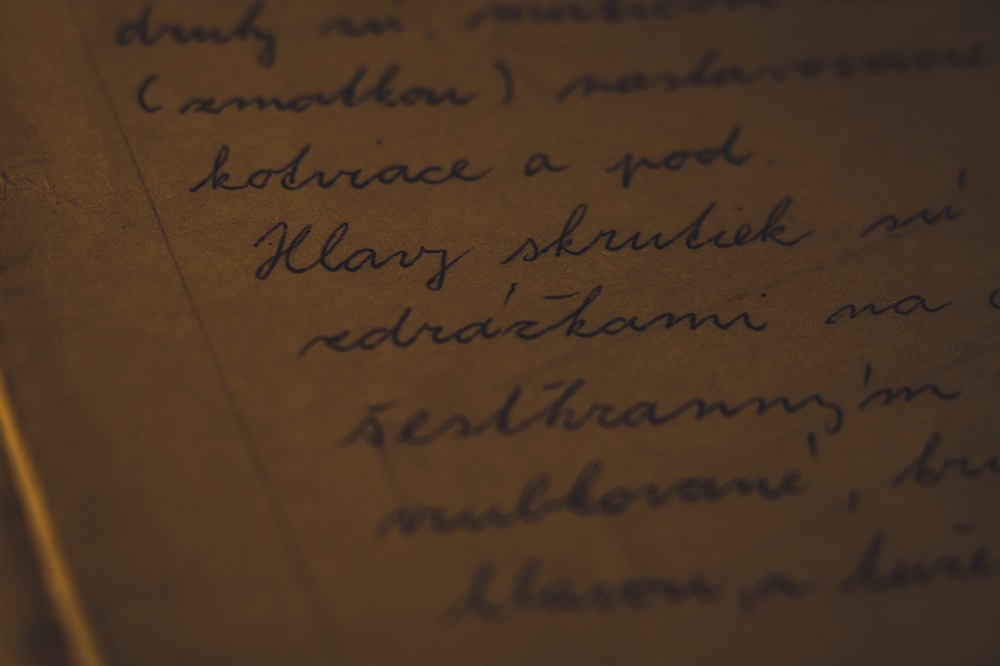 druhy sú
(zmatkou)
kotviace a pod.
Hlavy skrutiek sú
zdrážkami na
šesťhranným
vrubkované,
hlavou, z